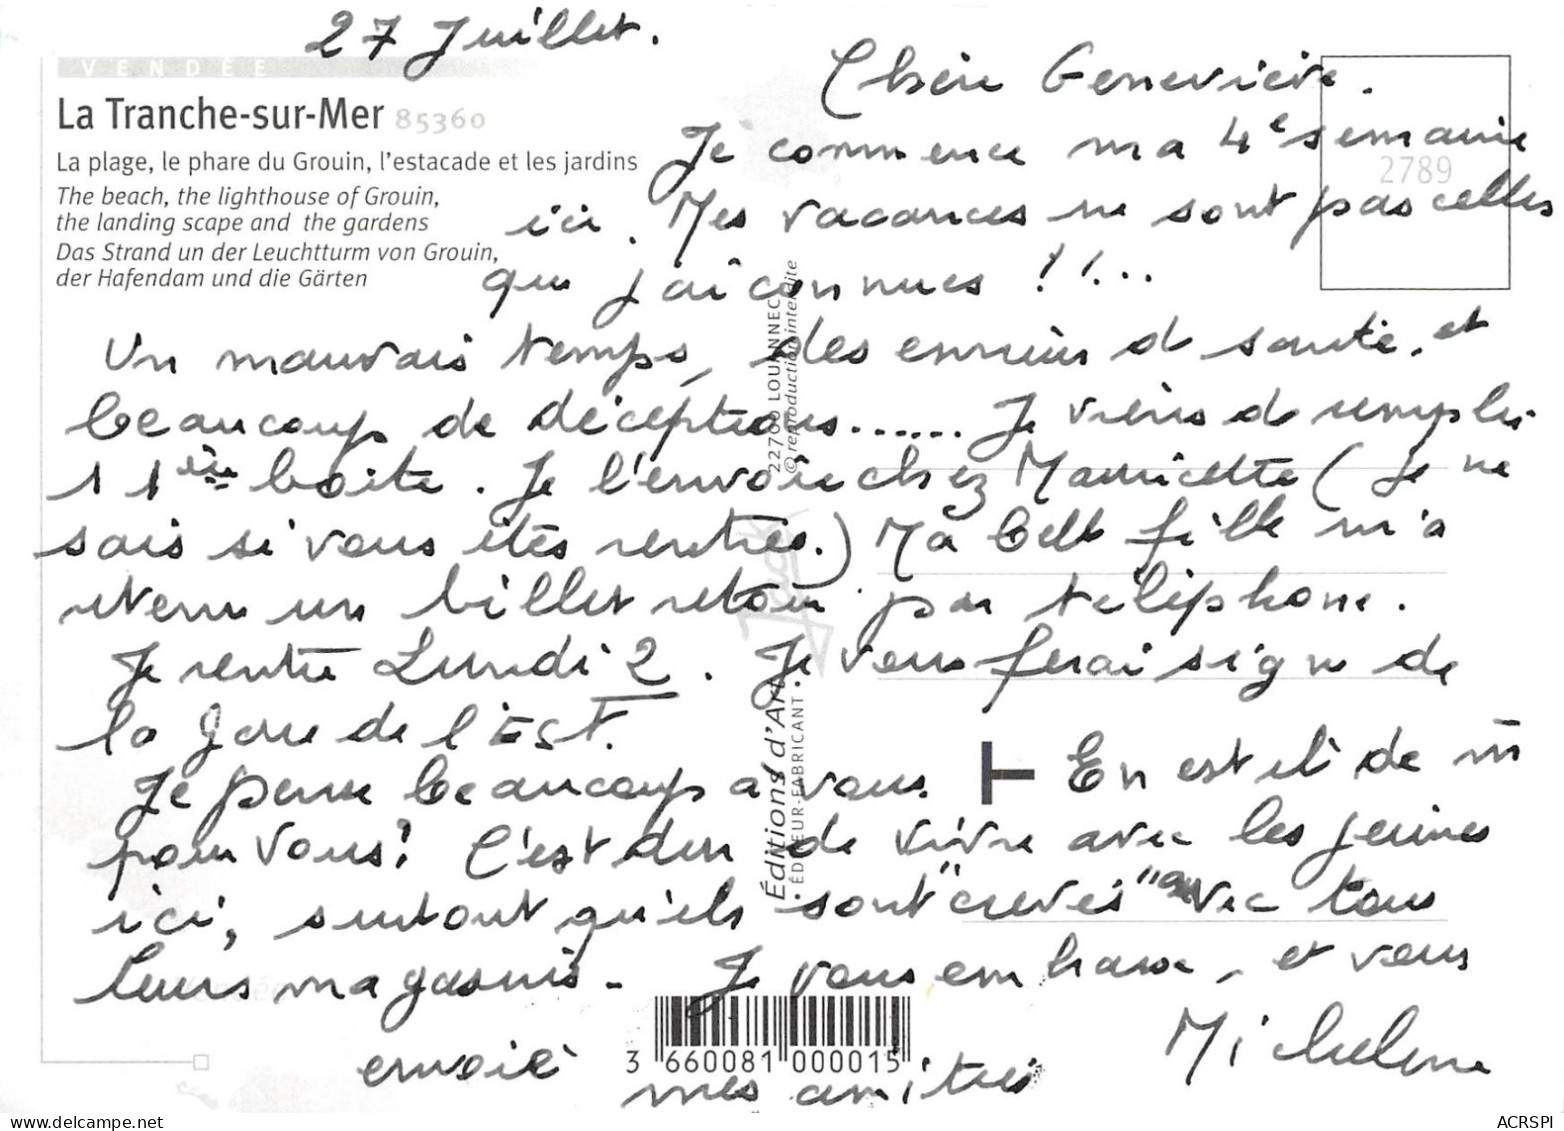 27 Juillet.
VENDÉE
La Tranche-sur-Mer 85360
La plage, le phare du Grouin, l'estacade et les jardins
The beach, the lighthouse of Grouin,
the landing scape and the gardens
Das Strand un der Leuchtturm von Grouin,
der Hafendam und die Gärten
2789
Chère Geneviève.
Je commence ma 4e semaine
ici. Mes vacances ne sont pas celles
que j'ai connues !!...
Un mauvais temps, des ennuis de santé, et
beaucoup de déceptions...... Je viens de remplir
1 1ère boite. Je l'envoie chez Mauricette (Je ne
sais si vous êtes rentrées.) Ma belle fille m'a
retenu un billet retour par téléphone.
Je rentre Lundi 2. Je vous ferai signe de
la Gare de l'Est.
Je pense beaucoup a vous. En est il de m
pour vous? C'est dur de vivre avec les jeunes
ici, surtout qu'ils sont "crevés" avec tous
leurs magasins - Je vous embrasse, et vous
envoie mes amitiés
Michelene
22700 LOUANNEC
© reproduction interdite
Jack
Éditions d'Art
• ÉDITEUR-FABRICANT •
Vendée
3 660081 000015
ACRSPI